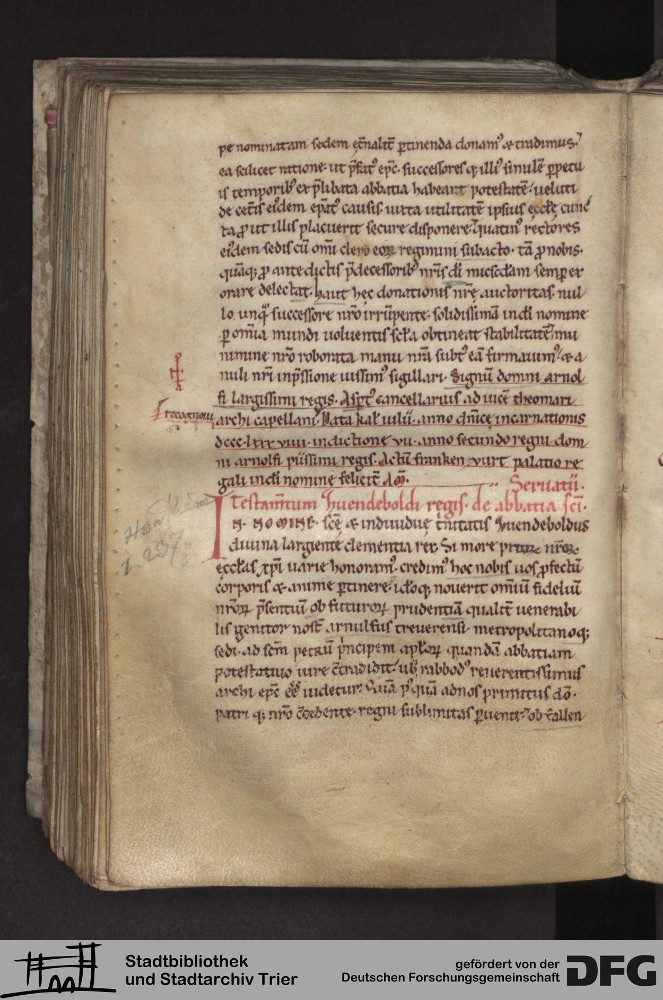 pe nominatam sedem et̄nalit̄ ptinenda donamꝰ & tradimus.
ea scilicet ratione. ut p̄fatꝰ ep̄c. successores q; illiꝰ simul̄e ꝑpetu
is temporibꝰ ex p̄libata abbatia habeant potestatē. veluti
de cet̄is eiꝰdem ep̄atꝰ causis iuxta utilitatē ipsius eccl̄e cunc
ta ꝓut illis placuerit secure disponere. quatinꝰ rectores
eiꝰdem sedis cū om̄i clero eoꝝ regimini subacto. tā ꝓ nobis.
quāq; ꝓ ante dictis p̄decessoribꝰ nr̄is dī misc̄dam semper ex
orare delectat. haut hec donationis nr̄e auctoritas. nul
lo unqꝰ successore nr̄o irrūpente. solidissimā in dī nomine
ꝑ om̄ia mundi voluentis sc̄la obtineat stabilitatē. mu
nimine nr̄o roborata manu nr̄a subtꝰ eā firmauimꝰ. & a
nuli nr̄i inp̄ssione iussimꝰ sigillari. Signū domni arnol
fi largissimi regis. Asptꝰ cancellarius ad uicē theomari
archi capellani
recognoui
Data kal̄ iulii. anno dn̄ice incarnationis
dccc. lxxx viiii. indictione vii. anno secundo regni dom
ni arnolfi piissimi regis. Actū franken vurt palatio re
gali in dī nomine felicit̄ Am̄.
Seruatii.
Testam̄tum huendeboldi regis. de abbatia sc̄i.
IN NOMINE. sc̄e & indiuidue t̄nitatis huendeboldus
diuina largiente clementia rex. Si more p̄rū nr̄oꝝ
eccl̄as xp̄i uarie honoramꝰ. credimꝰ hoc nobis ad ꝓfectū
corporis & anime ꝑtinere. idcoq; nouerit omniū fideliū
nr̄oꝝ p̄sentiū & futuroꝝ prudentia qualit̄ venerabi
lis genitor nost̄ arnulfus treuerensi. metropolitanoq;
sedi. ad sc̄m petrū p̄ncipem apl̄oꝝ quandā abbatiam
potestatiuo iure c̄tradidit. ubi rabbodꝰ reuerentissimus
archi ep̄c ēē uidetur. Quā pꝰquā ad nos primitus dō.
patri q; nr̄o c̄cedente. regni sublimitas ꝑuenit. ob c̄allen
Stadtbibliothek
und Stadtarchiv Trier
gefördert von der
Deutschen Forschungsgemeinschaft
DFG